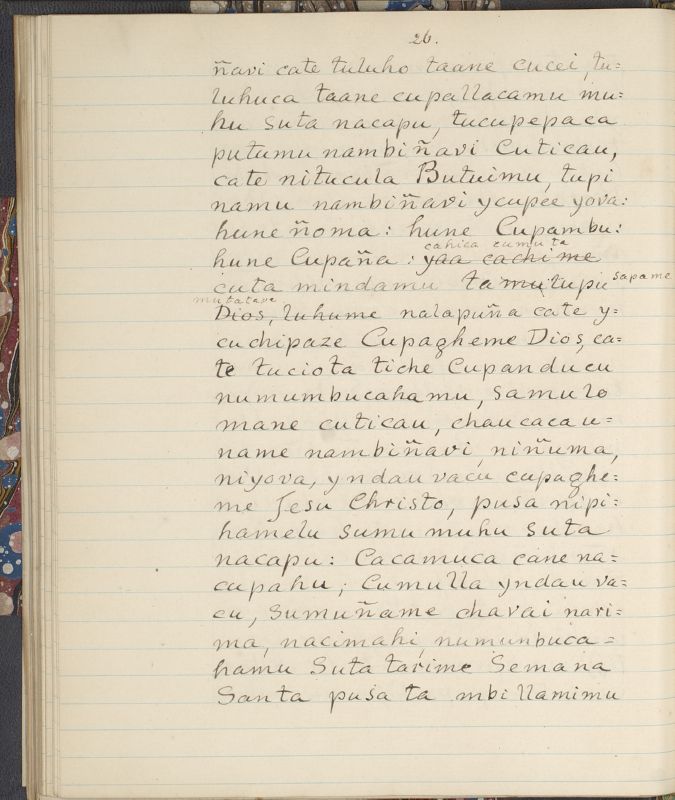 26.
ñavi cate tuluho taane cucei, tu=
luhuca taane cupallacamu mu=
hu suta nacapu, tucupepaca
putumu nambiñavi Cuticau,
cate nitucula Butuimu, tupi
namu nambiñavi ycupee yova:
hune ñoma: hune Cupambu:
cahica cumuta
hune Cupaña: yaa cachi me
cuta mindamu tamutupu sapame
mutatave
Dios, luhume nalapuña cate y=
cuchipaze Cupagheme Dios, ca=
te tuciota tiche Cupanducu
numumbucahamu, samulo
mane cuticau, chaucacau=
name nambiñavi, niñuma,
niyova, yndau vacu cupaghe=
me Jesu Christo, pusa nipi=
hamelu sumu muhu suta
nacapu: Cacamuca cane na=
cupahu; Cumulla yndau va=
cu, sumuñame chavai nari=
ma, nacimahi, numunbuca=
hamu Suta tarime Semana
Santa pusa ta mbillamimu